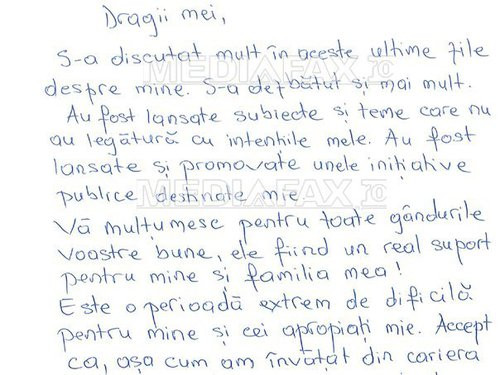 Dragii mei,
S-a discutat mult în aceste ultime zile
despre mine. S-a dezbătut și mai mult.
Au fost lansate subiecte si teme care nu
au legătură cu intențiile mele. Au fost
lansate și promovate unele inițiative
publice destinate mie
Vă mulțumesc pentru toate gândurile
voastre bune, ele fiind un real suport
pentru mine și familia mea!
Este o perioadă extrem de dificilă
pentru mine și cei apropiați mie. Accept
ca, așa cum am învățat din cariera
MEDIAFAX.ro
MEDIAFAX.ro